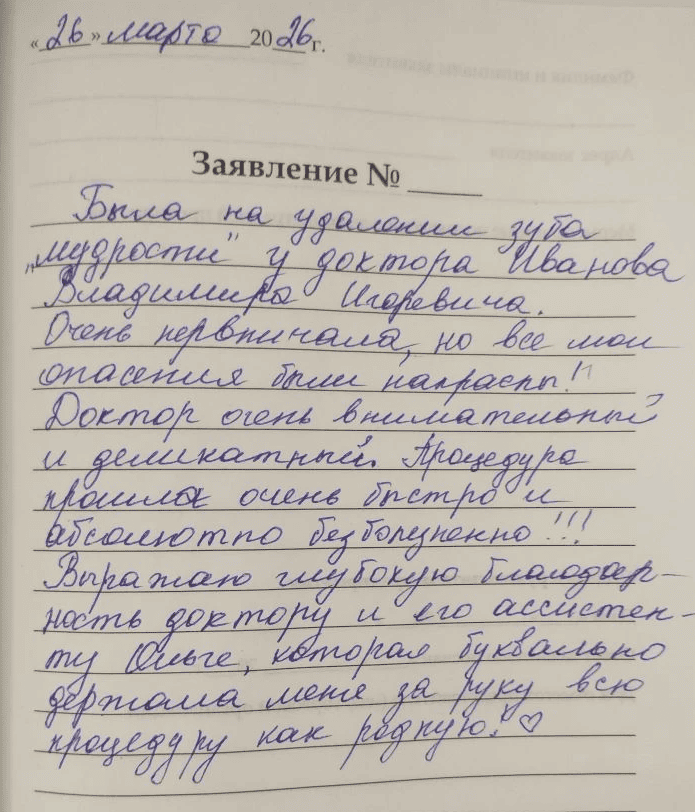 «26» марта 2026 г.
Заявление № ____
Была на удалении зуба
„мудрости" у доктора Иванова
Владимира Игоревича.
Очень нервничала, но все мои
опасения были напрасны!!
Доктор очень внимательный
и деликатный. Процедура
прошла очень быстро и
абсолютно безболезненно!!!
Выражаю глубокую благодар-
ность доктору и его ассистен-
ту Ольге, которая буквально
держала меня за руку всю
процедуру как родную! ♡